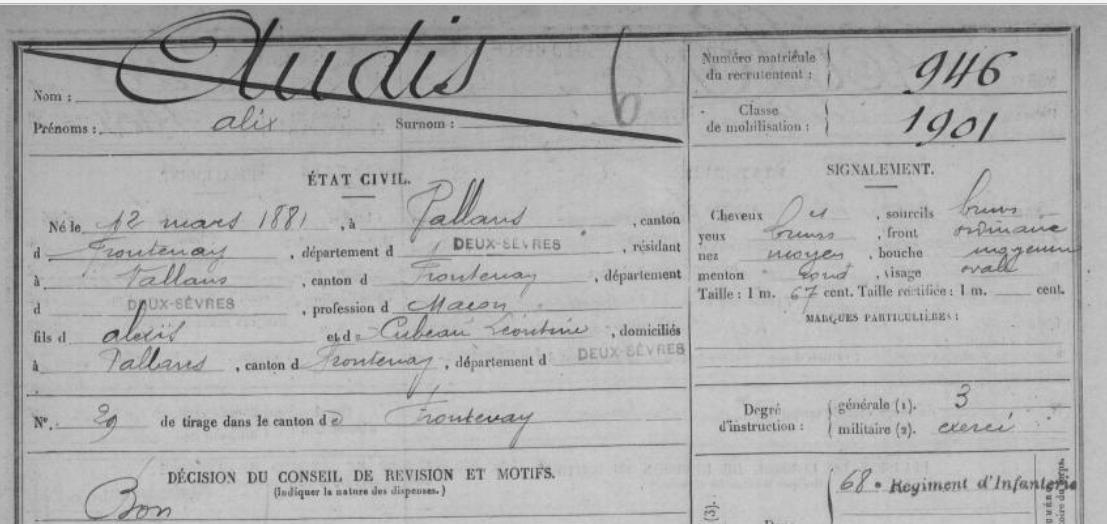 Nom : Audis 6
Prénoms : alix Surnom :
Numéro matricule du recrutement : 946
Classe de mobilisation : 1901
ÉTAT CIVIL.
Né le 12 mars 1881, à Vallans, canton
d Frontenay, département d DEUX-SÈVRES, résidant
à Vallans, canton d Frontenay, département
d DEUX-SÈVRES, profession d Maçon
fils d alexis et d Cubeau Léontine, domiciliés
à Vallans, canton d Frontenay, département d DEUX-SÈVRES
N°. 29 de tirage dans le canton de Frontenay
DÉCISION DU CONSEIL DE REVISION ET MOTIFS.
(Indiquer la nature des dispenses.)
Bon
SIGNALEMENT.
Cheveux et, sourcils bruns
yeux bruns, front ordinaire
nez moyen, bouche moyenne
menton rond, visage ovale
Taille : 1 m. 67 cent. Taille rectifiée : 1 m. cent.
MARQUES PARTICULIÈRES :
Degré d'instruction :
générale (1). 3
militaire (2). exercé
68e Regiment d'Infanterie
(3).